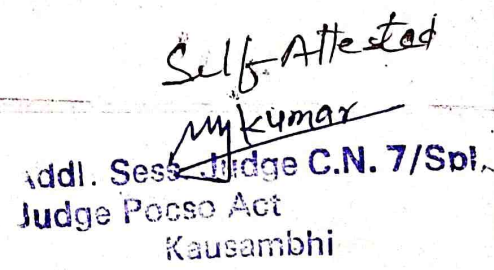 Self-Attested
kumar
Addl. Sess. Judge C.N. 7/Spl.
Judge Pocso Act
Kausambhi